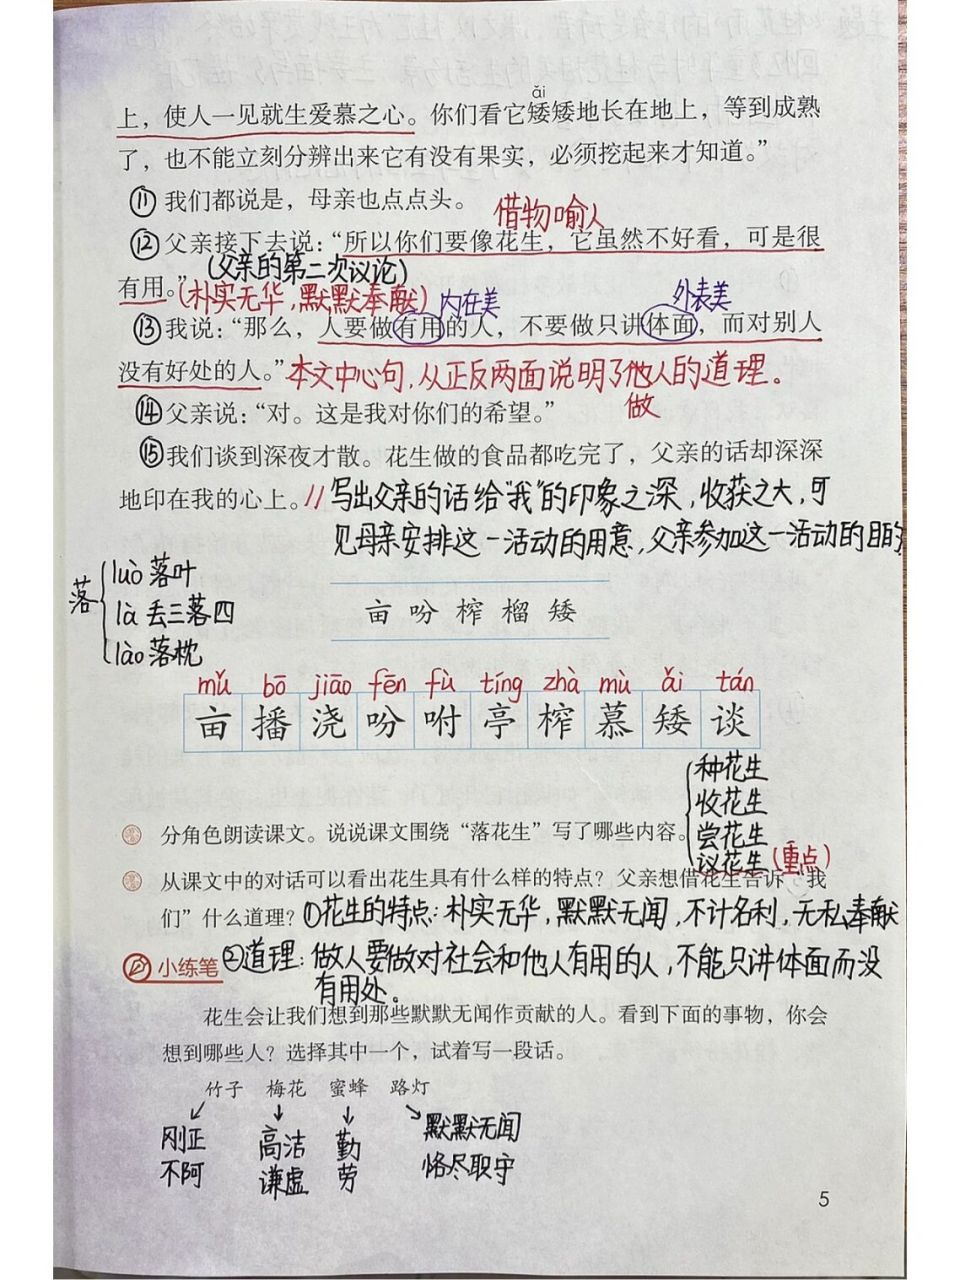 ǎi
上，使人一见就生爱慕之心。你们看它矮矮地长在地上，等到成熟
了，也不能立刻分辨出来它有没有果实，必须挖起来才知道。”
⑪我们都说是，母亲也点点头。
借物喻人
⑫父亲接下去说：“所以你们要像花生，它虽然不好看，可是很
有用。”
(父亲的第二次议论)
(朴实无华，默默奉献)
内在美
外表美
⑬我说：“那么，人要做有用的人，不要做只讲体面，而对别人
没有好处的人。”本文中心句，从正反两面说明了他人的道理。
做
⑭父亲说：“对。这是我对你们的希望。”
⑮我们谈到深夜才散。花生做的食品都吃完了，父亲的话却深深
地印在我的心上。//写出父亲的话给“我”的印象之深，收获之大，可
见母亲安排这一活动的用意，父亲参加这一活动的目的
落
luò 落叶
là 丢三落四
lào 落枕
亩 吩 榨 榴 矮
mǔ bō jiāo fēn fù tíng zhà mù ǎi tán
亩 播 浇 吩 咐 亭 榨 慕 矮 谈
种花生
收花生
尝花生
议花生(重点)
分角色朗读课文。说说课文围绕“落花生”写了哪些内容。
从课文中的对话可以看出花生具有什么样的特点？父亲想借花生告诉“我
们”什么道理？①花生的特点：朴实无华，默默无闻，不计名利，无私奉献
小练笔 ②道理：做人要做对社会和他人有用的人，不能只讲体面而没
有用处。
花生会让我们想到那些默默无闻作贡献的人。看到下面的事物，你会
想到哪些人？选择其中一个，试着写一段话。
竹子 梅花 蜜蜂 路灯
刚正不阿
高洁谦虚
勤劳
默默无闻
恪尽职守
5